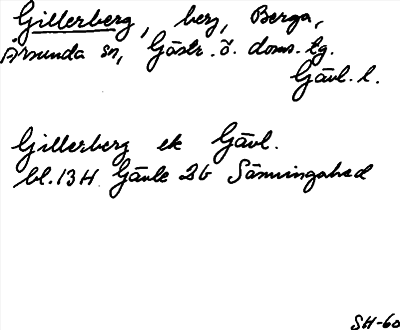 Gillerberg, berg, Berga,
Årsunda sn, Gästr. ö. doms. tg.
Gävl. l.
Gillerberg ek Gävl.
bl. 13 H Gävle 2b
SH-60